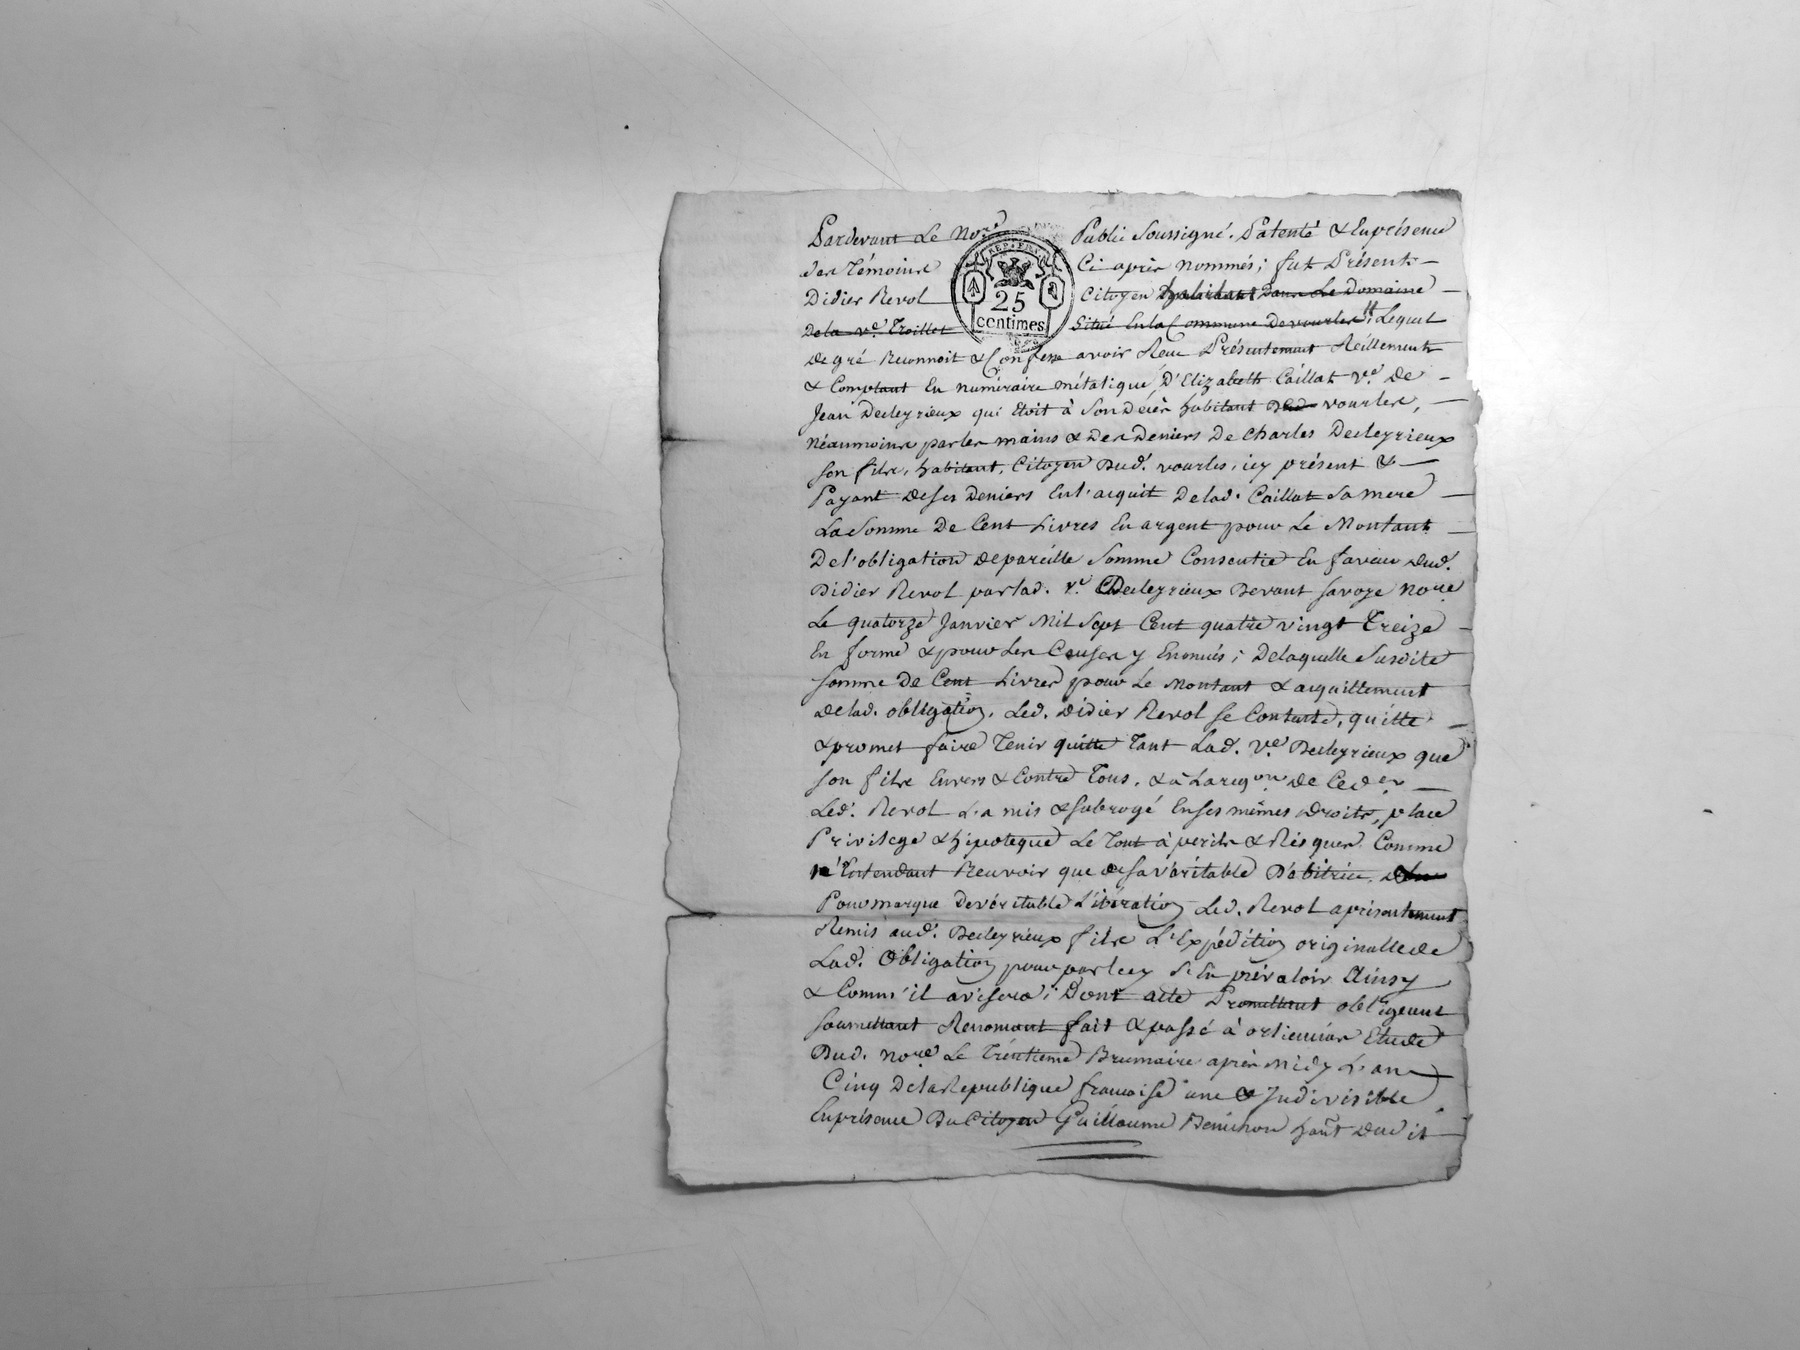 Pardevant Le No.re Public Soussigné, Patenté & En présence
des Témoins Ci après nommés; fut Présent
REP. FRA.
25
centimes
Didier Revol Citoyen habitant Dans Le Domaine
De la v.e Troillet Situé En la Commune De vourles; Lequel
de gré Reconnoit & Confesse avoir Reçu Présentement Réellement
& Comptant En numéraire métalique, D'Elizabeth Caillat v.e De
Jean Decleyrieux qui étoit à Son Décès habitant Dud. vourles,
Néanmoins par les mains & Des Deniers De Charles Decleyrieux
son fils, habitant, Citoyen Dud. vourles, icy présent &
Payant de ses Deniers En l'acquit De lad. Caillat Sa mere
La Somme De Cent Livres En argent pour Le Montant
De l'obligation de pareille Somme Consentie En faveur dud.
Didier Revol par lad. v.e Decleyrieux Devant Savoye No.re
Le quatorze Janvier Mil Sept Cent quatre vingt Treize
En forme & pour Les Causes y Enoncés; De laquelle Susdite
Somme De Cent Livres pour Le Montant & acquittement
de lad. obligation, Led. Didier Revol se Contente, quitte
& promet faire Tenir quitte Tant Lad. v.e Decleyrieux que
son fils Envers & Contre Tous, & à La req.on De Ced.er
Led. Revol L'a mis & subrogé En ses mêmes Droits, place
Privilege & hipoteque Le Tout à perils & Risques Comme
n'Entendant Recevoir que de sa véritable Débitrice,
Pour marque De véritable Libération Led. Revol a présentement
Remis aud. Decleyrieux fils L'Expédition originalle de
Lad. Obligation pour par Icey S'En prévaloir Ainsy
& Comm'il avisera; Dont acte Promettant obligeant
Soumettant Renonçant fait & passé à orliennas Etude
Dud. No.re Le Trentieme Brumaire après Midy L'an
Cinq De la Republique françoise une & Indivisible
En présence Du Citoyen Guillaume hant. Dudit